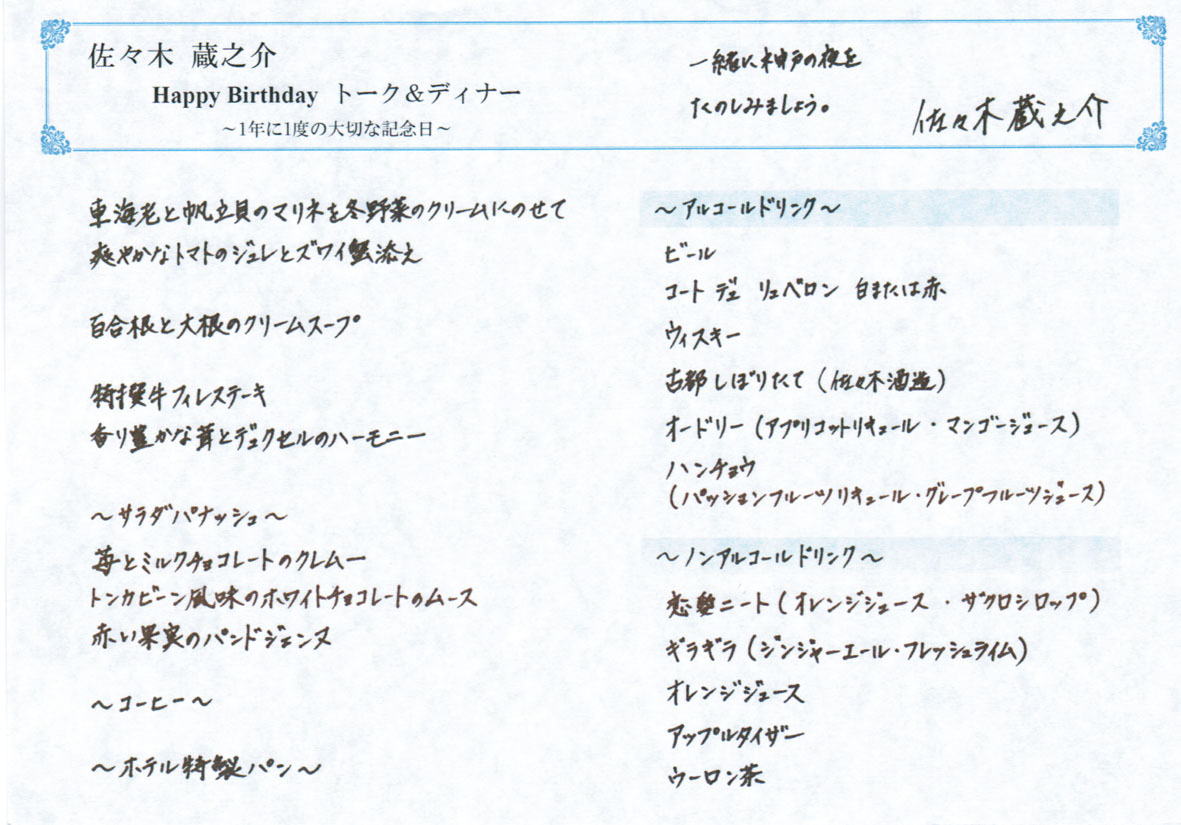 佐々木 蔵之介
Happy Birthday トーク＆ディナー
～1年に1度の大切な記念日～
一緒に神戸の夜を
たのしみましょう。
佐々木蔵之介
車海老と帆立貝のマリネを冬野菜のクリームにのせて
爽やかなトマトのジュレとズワイ蟹添え
百合根と大根のクリームスープ
特撰牛フィレステーキ
香り豊かな茸とデュクセルのハーモニー
～サラダパナッシュ～
苺とミルクチョコレートのクレムー
トンカビーン風味のホワイトチョコレートのムース
赤い果実のパンドジェンヌ
～コーヒー～
～ホテル特製パン～
～アルコールドリンク～
ビール
コート デュ リュベロン 白または赤
ウィスキー
古都しぼりたて（佐々木酒造）
オードリー（アプリコットリキュール・マンゴージュース）
ハンチョウ
（パッションフルーツリキュール・グレープフルーツジュース）
～ノンアルコールドリンク～
恋愛ニート（オレンジジュース・ザクロシロップ）
ギラギラ（ジンジャーエール・フレッシュライム）
オレンジジュース
アップルタイザー
ウーロン茶